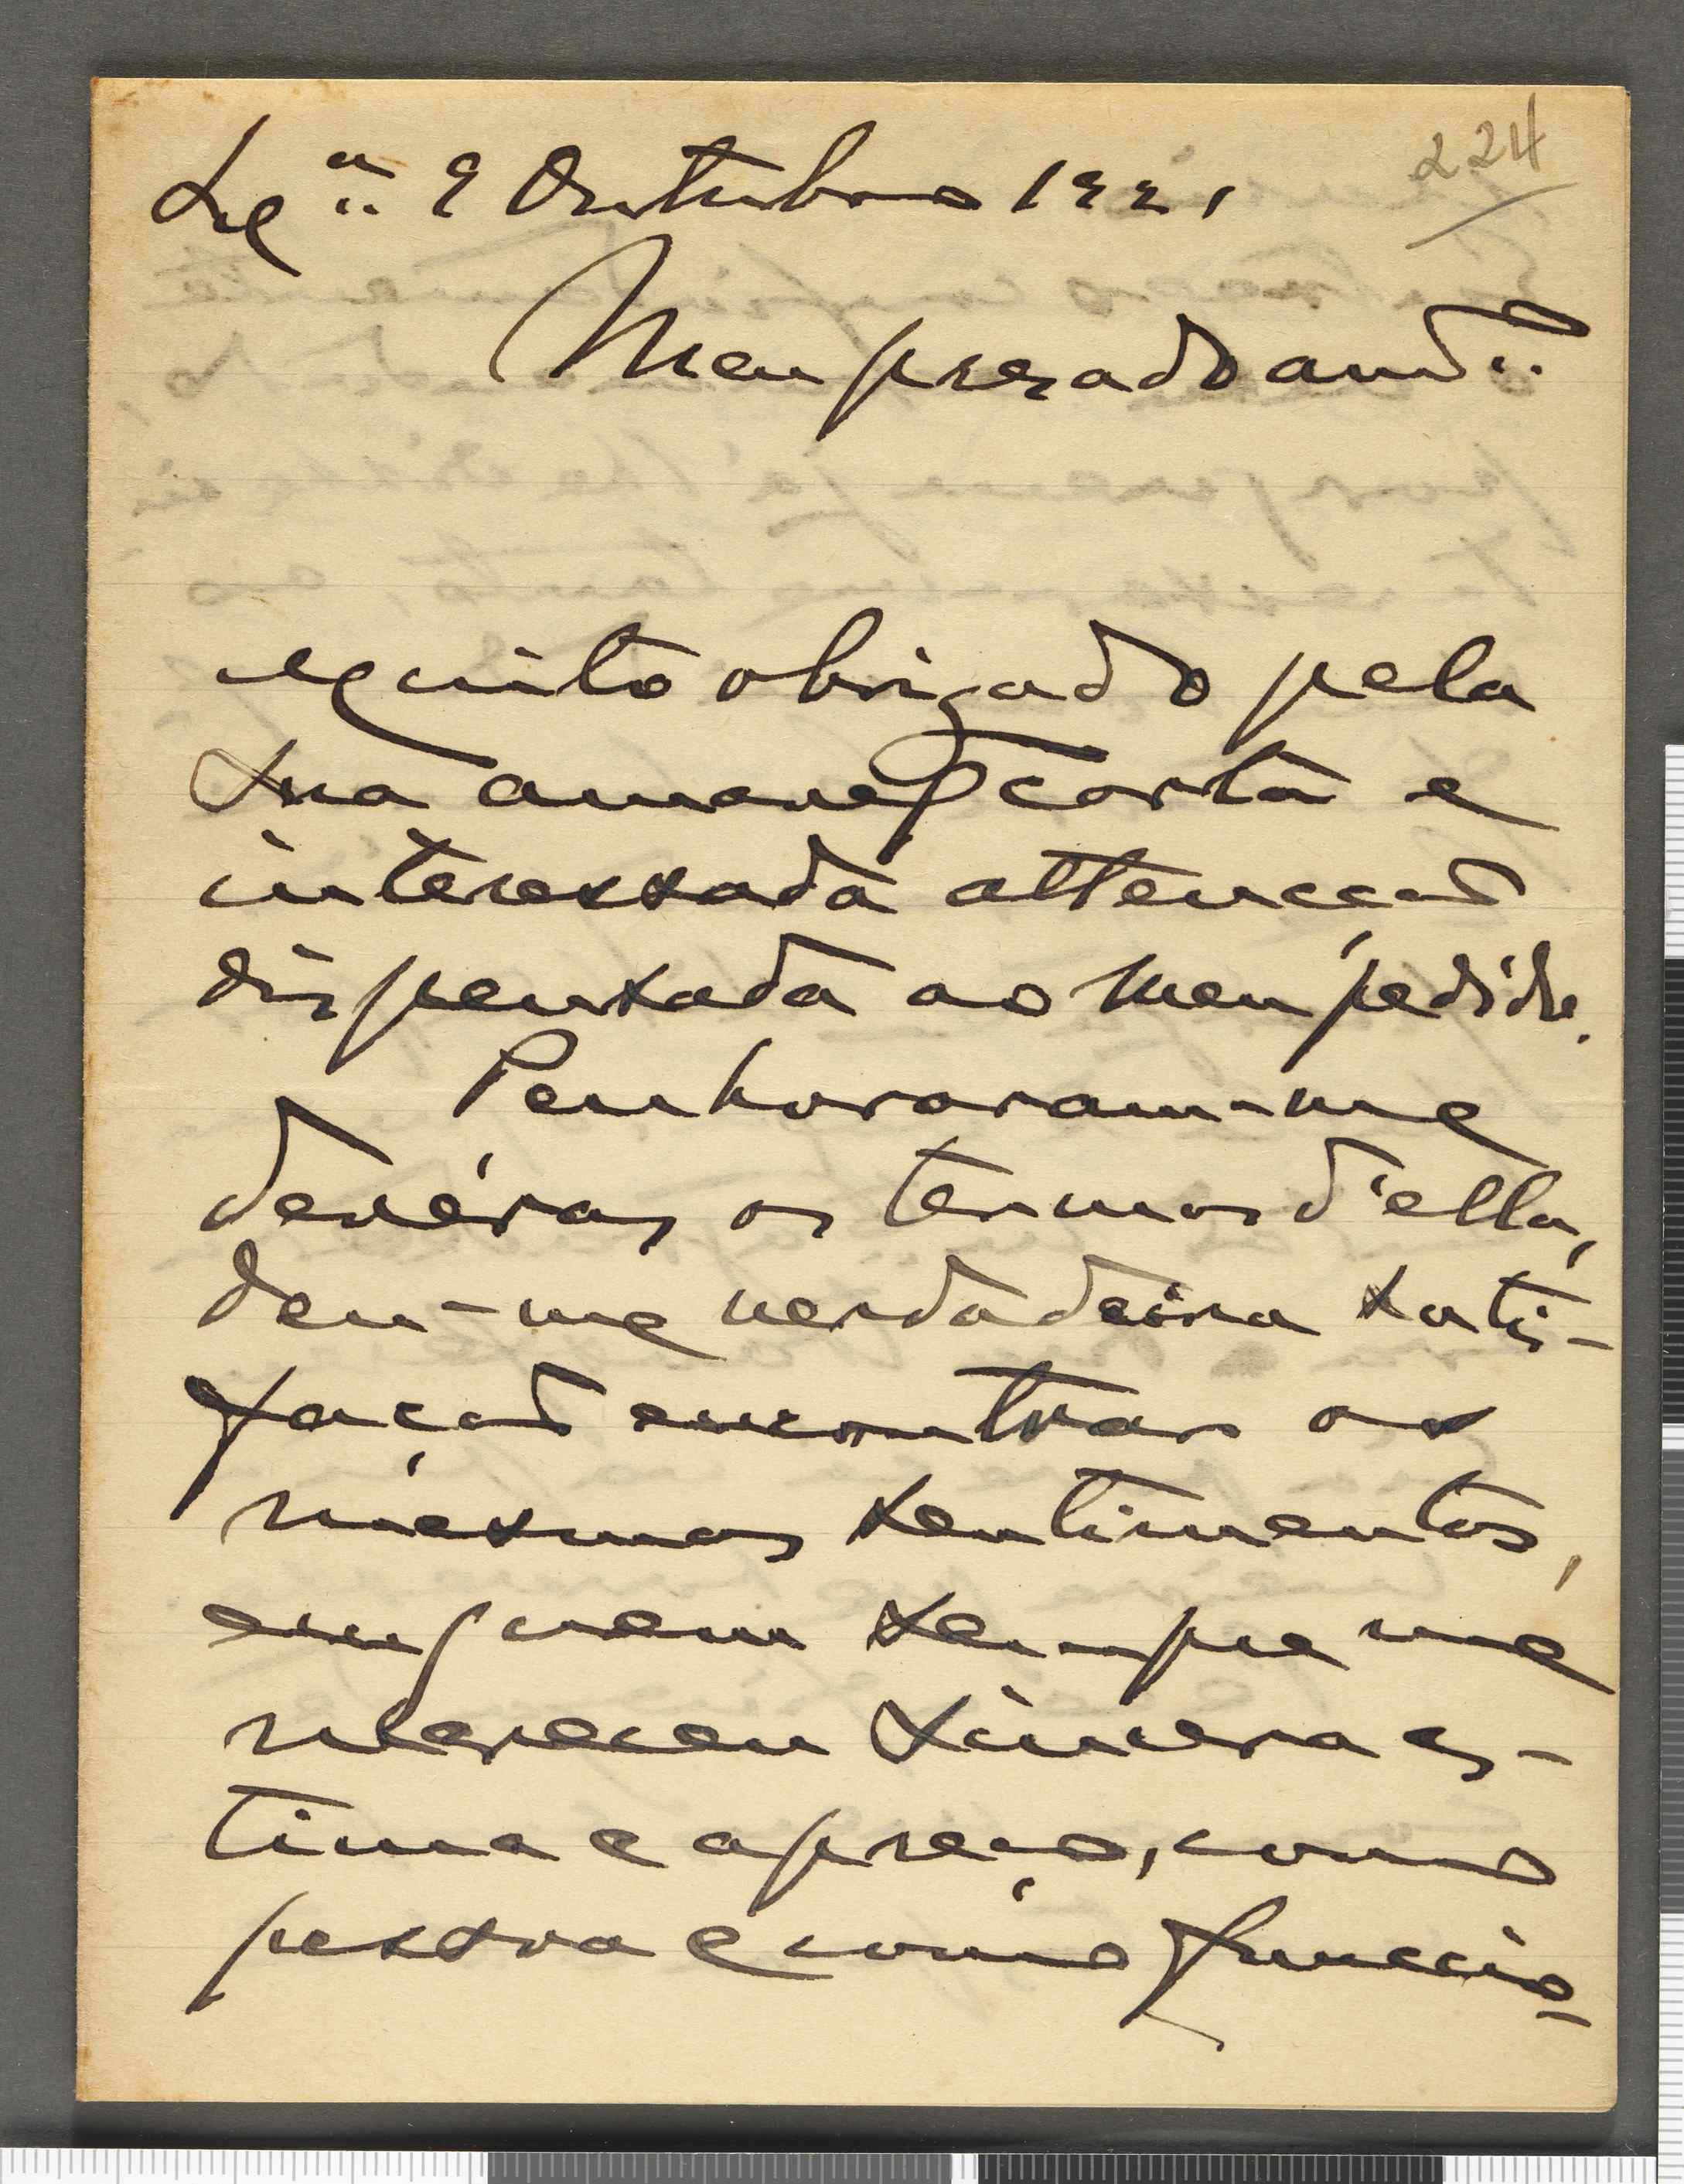 224
Lxª.. 9 Outubro 1921
Meu presado amº..
Muito obrigado pela
sua amavel carta e
interessada attenção
dispensada ao meu pedido.
Penhoraram-me
devéras os termos d'ella,
deu-me verdadeira satis-
fação encontrar os
mesmos sentimentos,
em quem sempre me
mereceu sincera es-
tima e apreço, como
pessoa e como funccio-